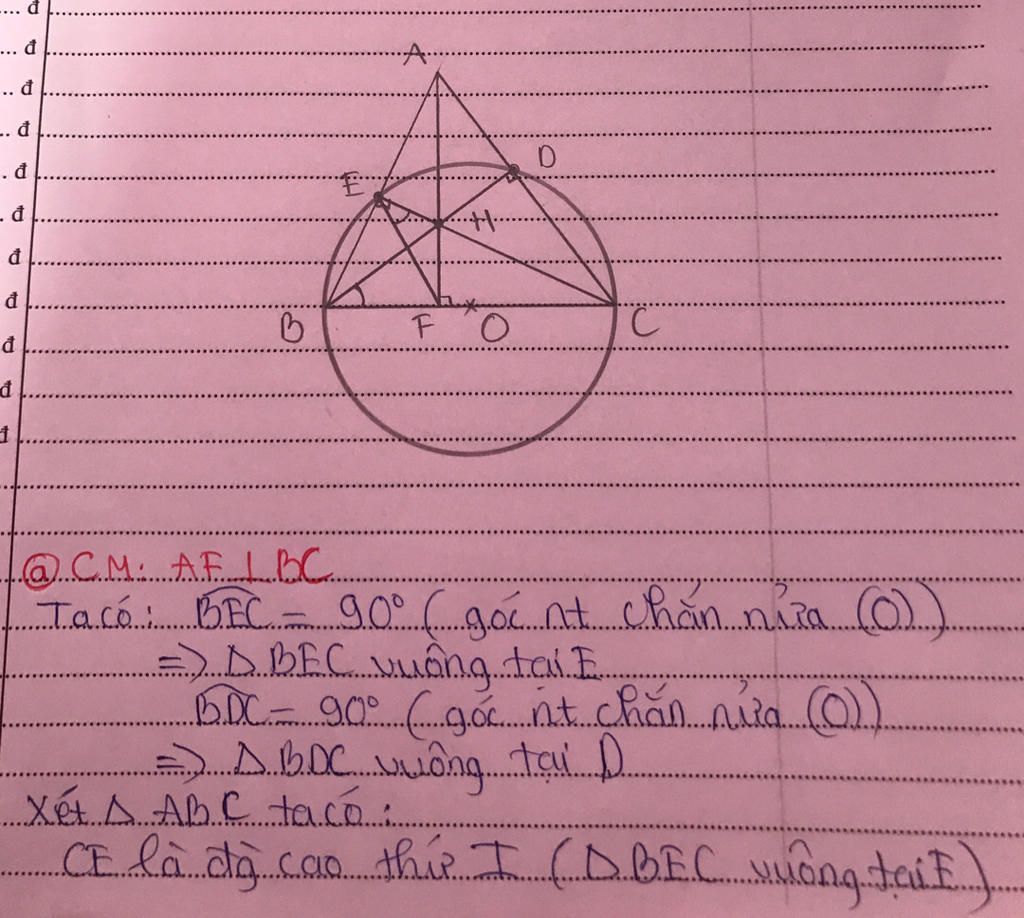 ... đ
... đ
.. đ
.. đ
. đ
. đ
đ
đ
đ
đ
đ
A
D
E
H
B F O C
ⓐ CM: AF ⊥ BC
Ta có: BEC = 90° (góc nt chắn nửa (O))
=> Δ BEC vuông tại E
BDC = 90° (góc nt chắn nửa (O))
=> Δ BDC vuông tại D
Xét Δ ABC ta có:
CE là đg cao thứ I (Δ BEC vuông tại E)